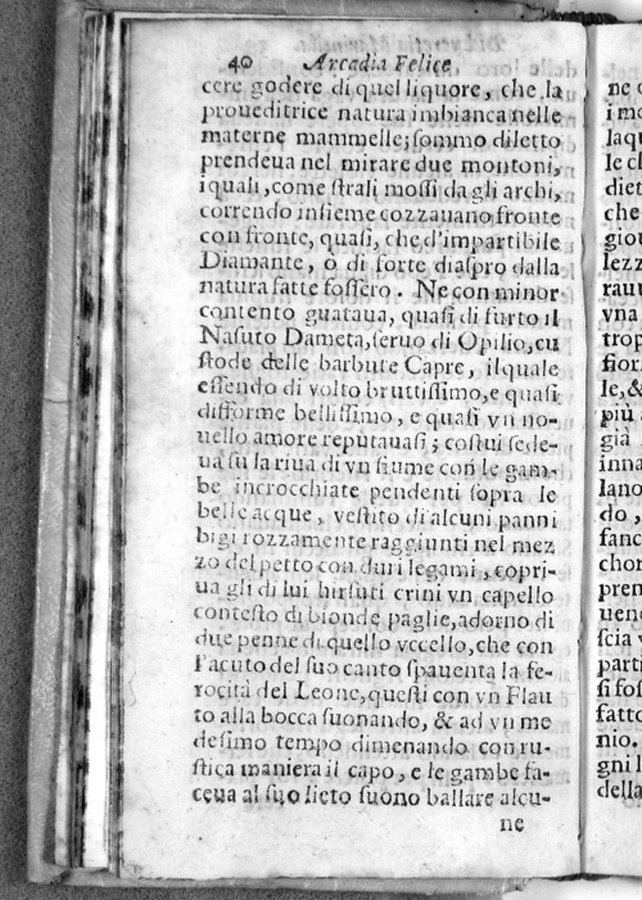 40 Arcadia Felice
cere godere di quel liquore, che la
proueditrice natura imbianca nelle
materne mammelle; ſommo diletto
prendeua nel mirare due montoni,
i quali, come ſtrali moſſi da gli archi,
correndo inſieme cozzauano fronte
con fronte, quaſi, che d'impartibile
Diamante, ò di forte diaſpro dalla
natura fatte foſſero. Ne con minor
contento guataua, quaſi di furto il
Naſuto Dameta, ſeruo di Opilio, cu
ſtode delle barbute Capre, ilquale
eſſendo di volto bruttiſſimo, e quaſi
difforme belliſſimo, e quaſi vn no-
uello amore reputauaſi; coſtui ſede-
ua ſu la riua di vn fiume con le gam-
be incrocchiate pendenti ſopra le
belle acque, veſtito di alcuni panni
bigi rozzamente raggiunti nel mez
zo del petto con duri legami, copri-
ua gli di lui hirſuti crini vn capello
conteſto di bionde paglie, adorno di
due penne di quello vccello, che con
l'acuto del ſuo canto ſpauenta la fe-
rocità del Leone, queſti con vn Flau
to alla bocca ſuonando, & ad vn me
deſimo tempo dimenando con ru-
ſtica maniera il capo, e le gambe fa-
ceua al ſuo lieto ſuono ballare alcu-
ne
ne
i mo
laqu
le
diet
che
giou
lezz
rauu
vna
trop
fior
le, &
più
già
inna
lano
do,
fanc
chor
pren
uen
ſcia
parti
ſi foſ
fatto
nio.
gni l
della